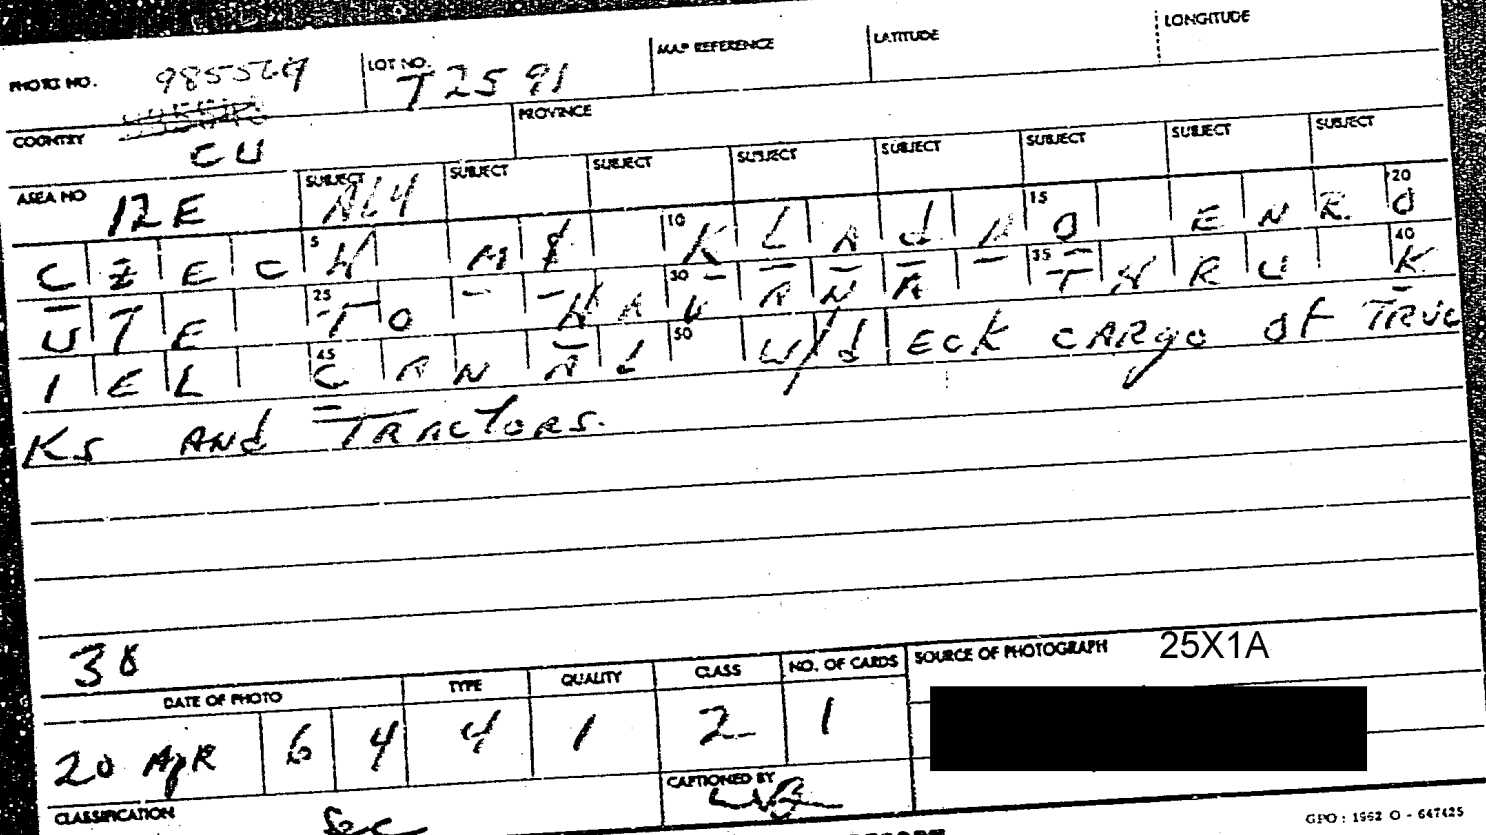 PHOTO NO. 985564 LOT NO. T2591 MAP REFERENCE LATITUDE LONGITUDE
COUNTRY CU PROVINCE
AREA NO 12E SUBJECT NL4 SUBJECT SUBJECT SUBJECT SUBJECT SUBJECT SUBJECT SUBJECT
5 10 15 20
CZECH MS KLADNO ENRO
25 30 35 40
UTE TO HAVANA THRU K
45 50
IEL CANAL W/dECK CARgo Of TRUC
Ks ANd TRACTORS.
38
DATE OF PHOTO TYPE QUALITY CLASS NO. OF CARDS SOURCE OF PHOTOGRAPH 25X1A
20 ApR 6 4 4 1 2 1
CAPTIONED BY
CLASSIFICATION Sec
GPO : 1962 O - 647425